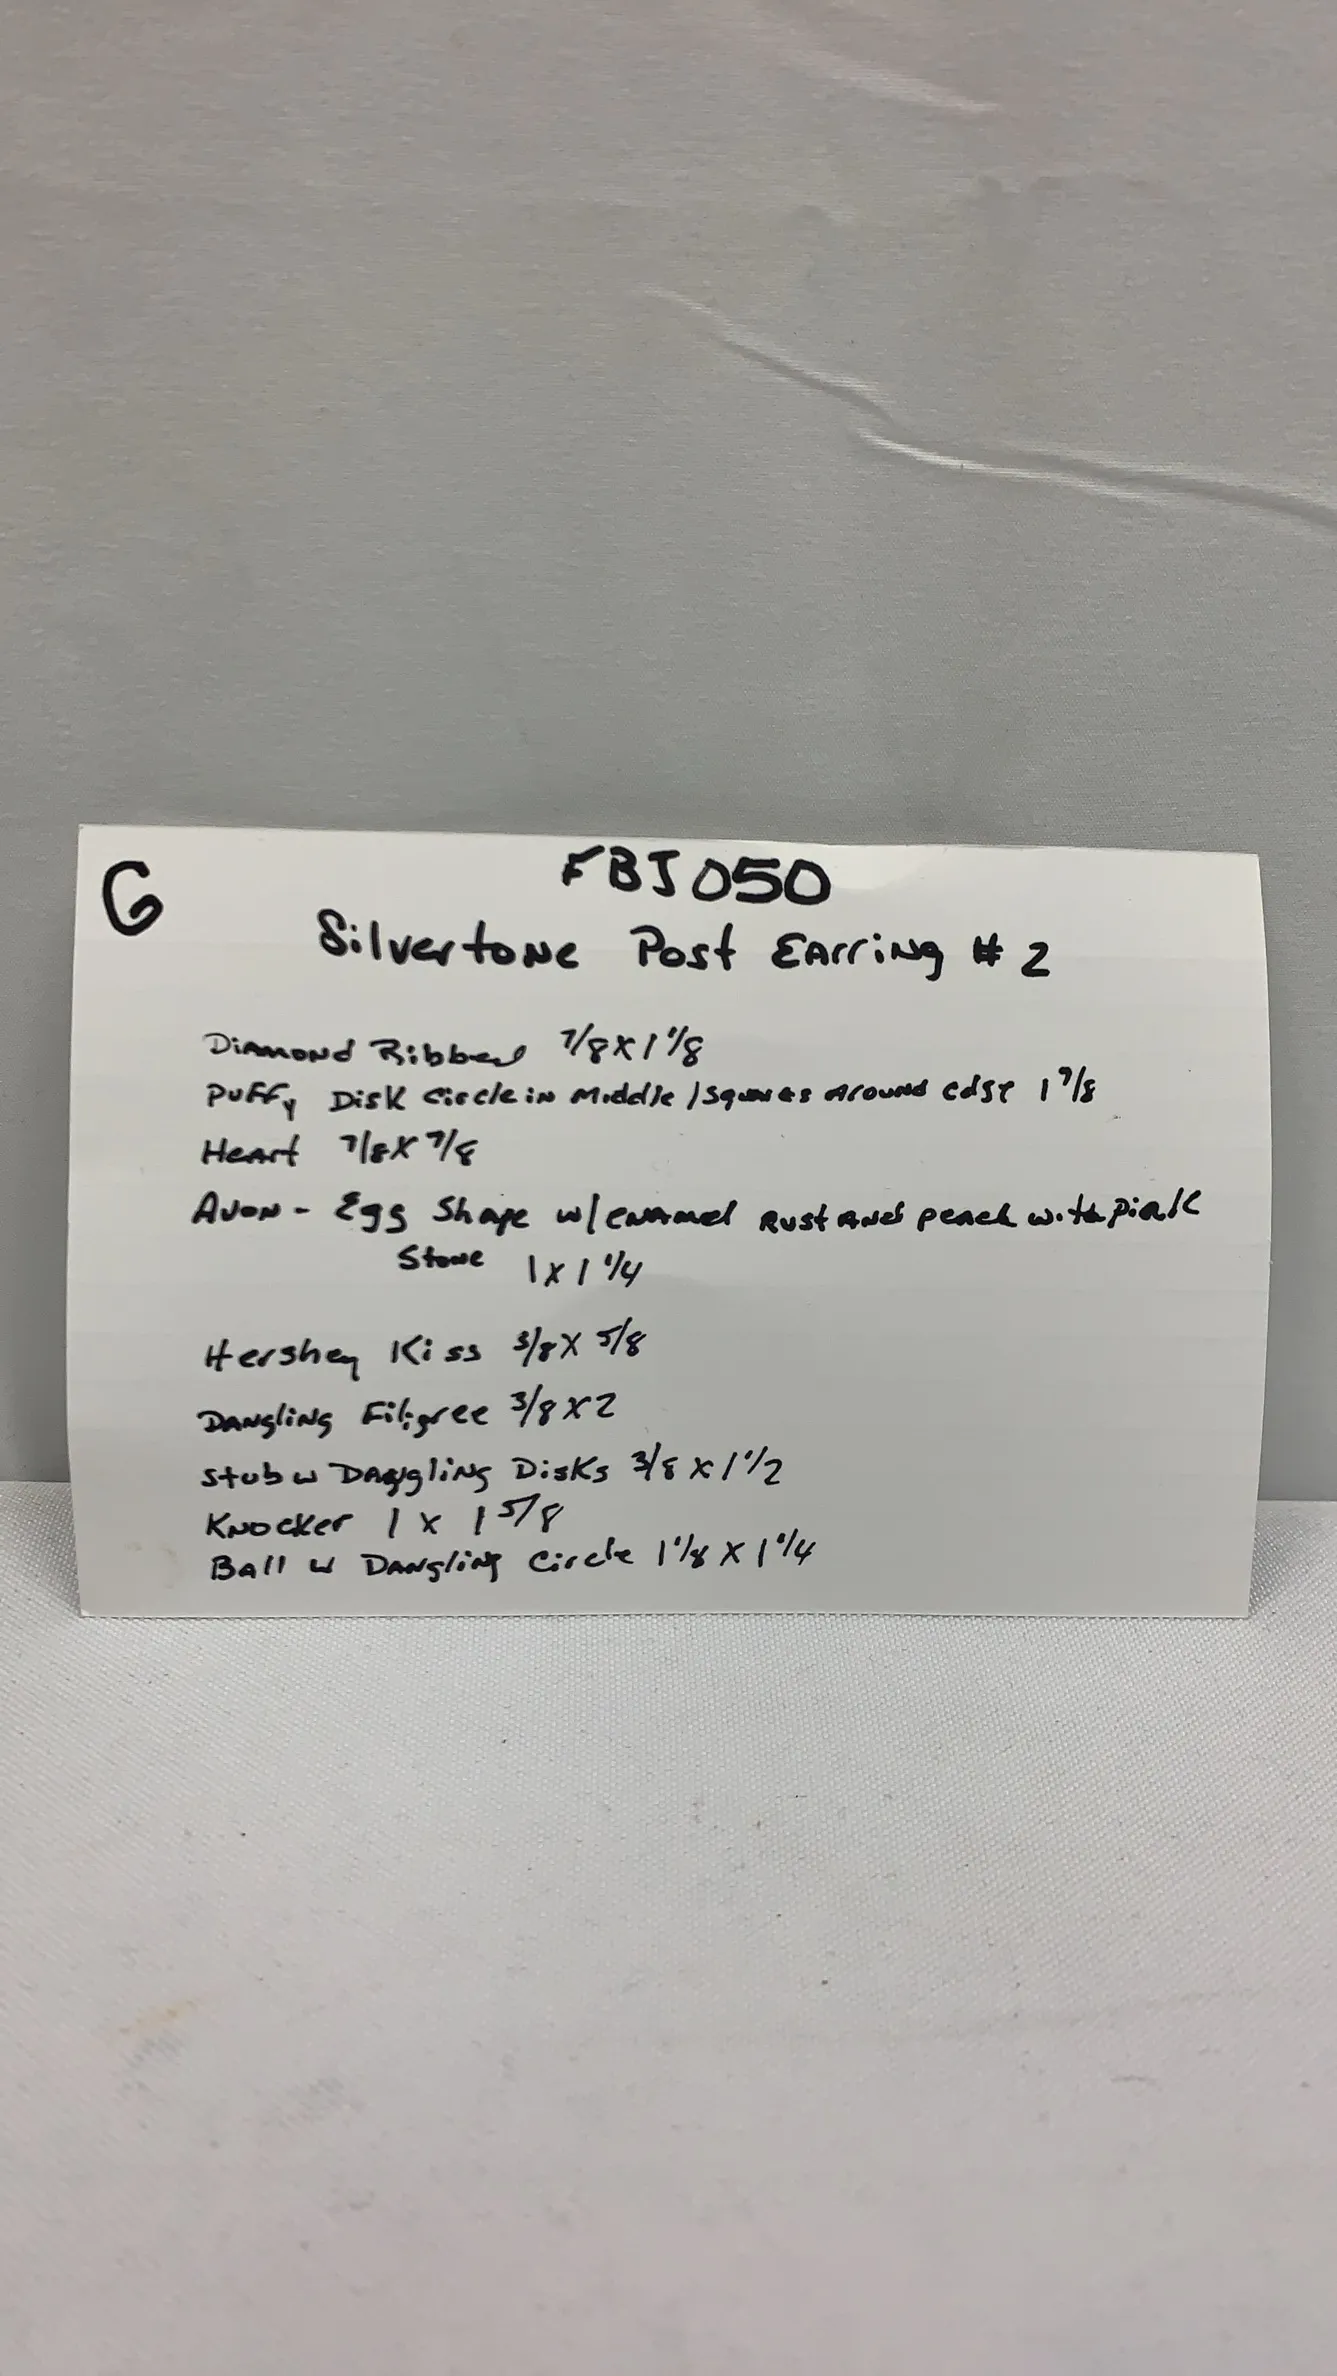 G
FBJ050
Silvertone Post Earring # 2
Diamond Ribbed 7/8 X 1 1/8
Puffy Disk Circle in Middle / Squares Around edge 1 7/8
Heart 7/8 X 7/8
Avon - Egg Shape w/ enamel Rust and peach with pink
Stone 1 X 1 1/4
Hershey Kiss 3/8 X 5/8
Dangling Filigree 3/8 X 2
Stub w Dangling Disks 3/8 X 1 1/2
Knocker 1 X 1 5/8
Ball w Dangling Circle 1 1/8 X 1 1/4